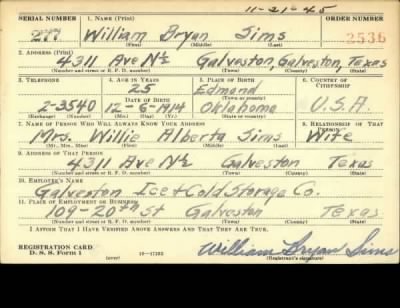 11-21-45
SERIAL NUMBER 1. Name (Print) ORDER NUMBER
277 William Bryan Sims 2536
(First) (Middle) (Last)
2. Address (Print)
4311 Ave N½ Galveston, Galveston, Texas
(Number and street or R. F. D. number) (Town) (County) (State)
3. Telephone 4. Age in Years 5. Place of Birth 6. Country of Citizenship
25 Edmond
Date of Birth (Town or county)
2-3540 12-6-1914 Oklahoma U.S.A.
(Exchange) (Number) (Mo.) (Day) (Yr.) (State or country)
7. Name of Person Who Will Always Know Your Address 8. Relationship of That Person
Mrs. Willie Alberta Sims Wife
(Mr., Mrs., Miss) (First) (Middle) (Last)
9. Address of That Person
4311 Ave N½ Galveston Texas
(Number and street or R. F. D. number) (Town) (County) (State)
10. Employer's Name
Galveston Ice & Cold Storage Co.
11. Place of Employment or Business
109-20th St Galveston Texas
(Number and street or R. F. D. number) (Town) (County) (State)
I Affirm That I Have Verified Above Answers and That They Are True.
REGISTRATION CARD
D. S. S. Form 1 (over) William Bryan Sims
(Registrant's signature)